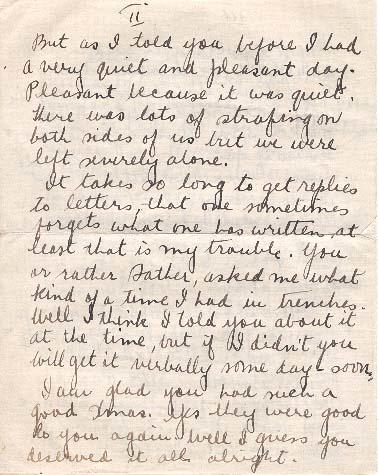 II
But as I told you before I had
a very quiet and pleasant day.
Pleasant because it was quiet.
there was lots of strafing on
both sides of us but we were
left severely alone.
It takes so long to get replies
to letters, that one sometimes
forgets what one has written at
least that is my trouble. You
or rather Father, asked me what
kind of a time I had in trenches.
Well I think I told you about it
at the time, but if I didn't you
will get it verbally some day soon,
I am glad you had such a
good Xmas. Yes they were good
to you again. Well I guess you
deserved it all alright.